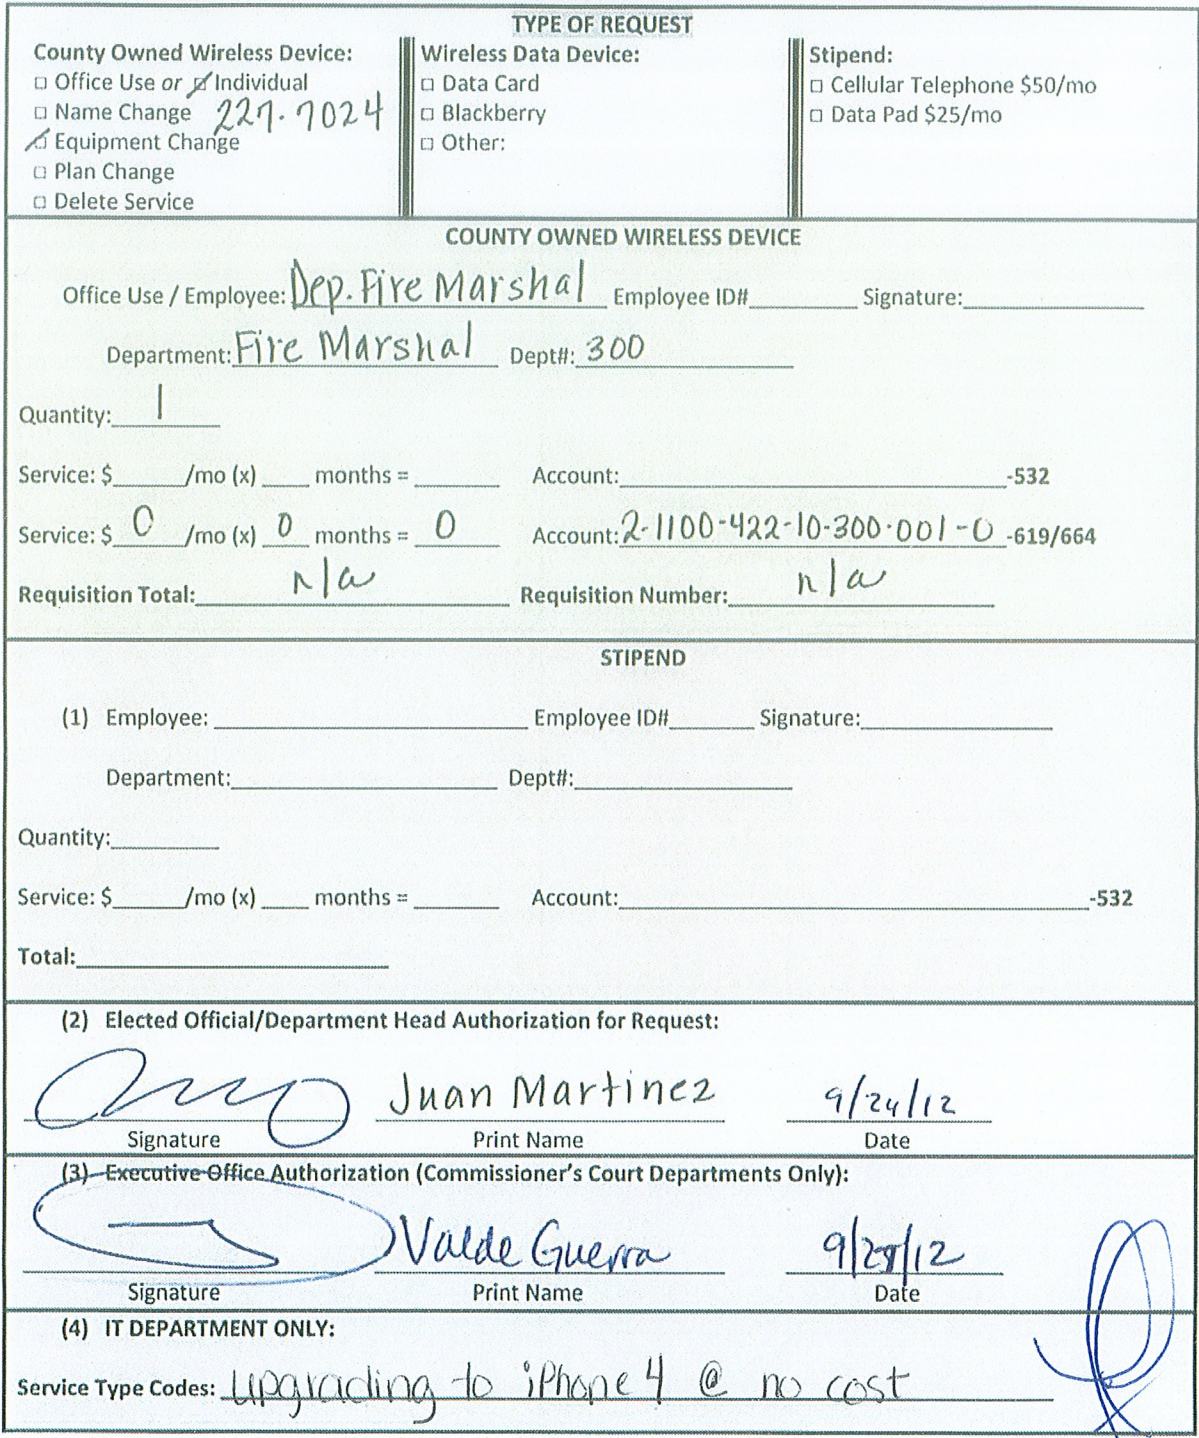 TYPE OF REQUEST
County Owned Wireless Device:
☐ Office Use or ☑ Individual
☐ Name Change 227-7024
☑ Equipment Change
☐ Plan Change
☐ Delete Service
Wireless Data Device:
☐ Data Card
☐ Blackberry
☐ Other:
Stipend:
☐ Cellular Telephone $50/mo
☐ Data Pad $25/mo
COUNTY OWNED WIRELESS DEVICE
Office Use / Employee: Dep. Fire Marshal Employee ID#________ Signature:________
Department: Fire Marshal Dept#: 300
Quantity: 1
Service: $______/mo (x) ____ months = ______ Account:________-532
Service: $ 0 /mo (x) 0 months = 0 Account: 2-1100-422-10-300-001-0 -619/664
Requisition Total: n/a Requisition Number: n/a
STIPEND
(1) Employee: ________ Employee ID#______ Signature:________
Department:________ Dept#:________
Quantity:________
Service: $______/mo (x) ____ months = ______ Account:________-532
Total:________
(2) Elected Official/Department Head Authorization for Request:
Juan Martinez 9/24/12
Signature Print Name Date
(3) Executive Office Authorization (Commissioner's Court Departments Only):
Valde Guerra 9/ /12
Signature Print Name Date
(4) IT DEPARTMENT ONLY:
Service Type Codes: upgrading to iPhone 4 @ no cost